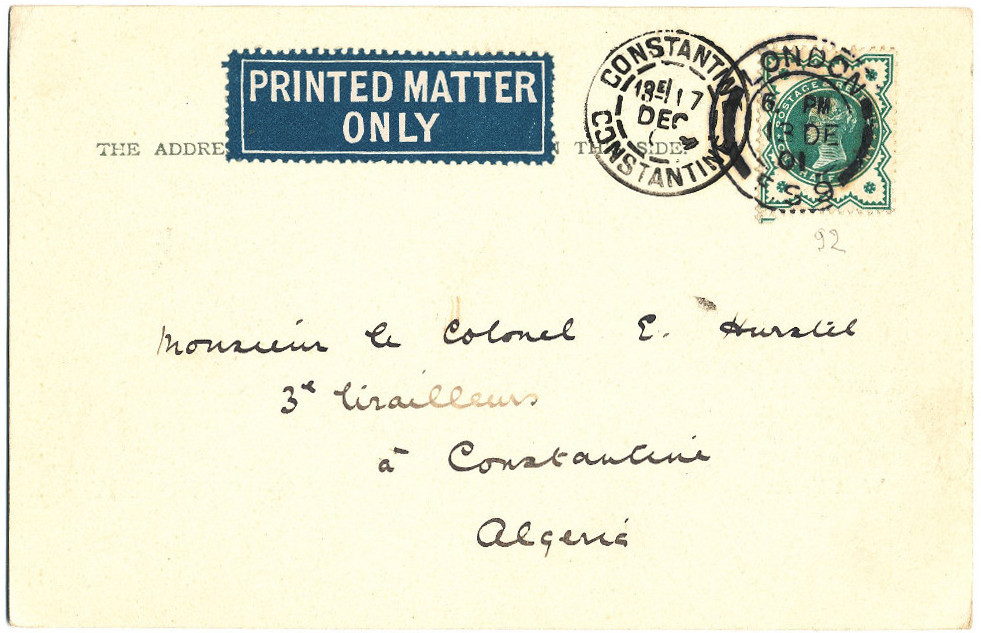 PRINTED MATTER
ONLY
THE ADDRE N TH SIDE
CONSTANTINE
13E/17
DEC
CONSTANTINE
LONDON
6 PM
DE
01
F.S 9
POSTAGE & REV
HALF
92
Monsieur le Colonel E. Hurstel
3e tirailleurs
à Constantine
Algerie